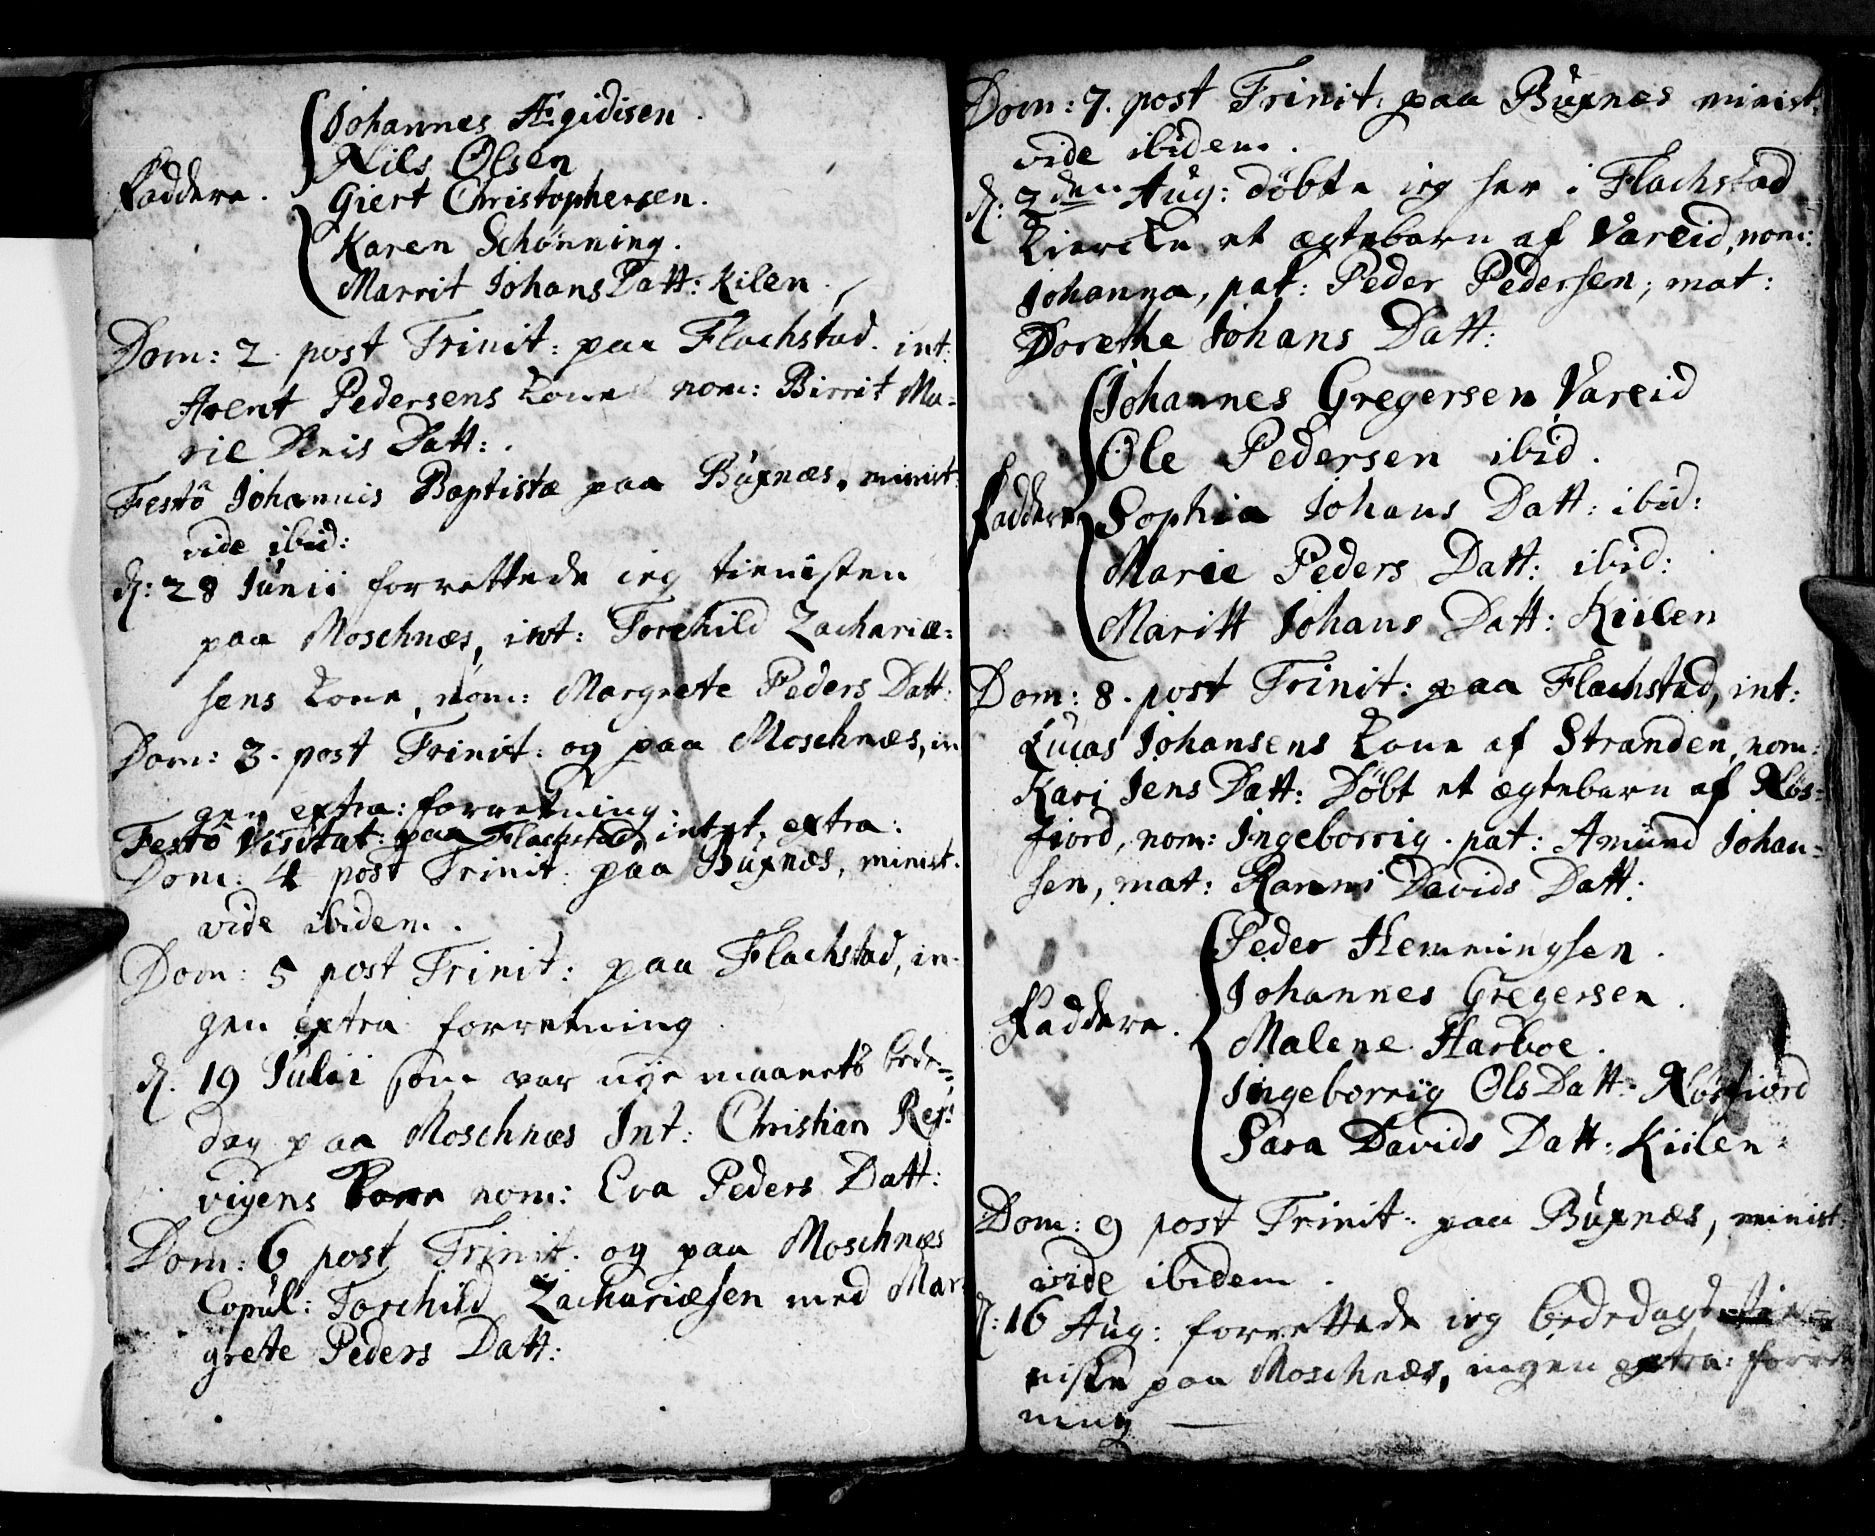 Johannes Ægidisen.
Nils Olsen
Faddere. Giert Christophersen.
Karen Schønning.
Marrit Johans Datt: Kilen.
Dom: 2. post Trinit: paa Flachstad. int:
Arent Pedersens Kone nom: Birrit Ma-
rie Datt:.
Festo Johannis Baptistæ paa Buxnæs, minist:
vide ibid:
d: 28 Junii forrettede ieg tienisten
paa Moschnæs, int: Torchild Zachariæ=
sens Kone, nom: Margrete Peders Datt:
Dom: 3. post Trinit: og paa Moschnæs, in
gen extra: forretning.
Festo Visitat: paa Flachstad intet extra:
Dom: 4 post Trinit: paa Buxnæs, minist.
vide ibidem.
Dom: 5 post Trinit: paa Flachstad, in-
gen extra forretning.
d. 19 Julii som var nye maanets bede=
dag paa Moschnæs Int: Christian
vigens Kone nom: Eva Peders Datt:
Dom: 6 post Trinit. og paa Moschnæs
Copul: Torchild Zachariæsen med Mar
grete Peders Datt:
Dom: 7. post Trinit: paa Buxnæs minist:
vide ibidem.
d: 2den Aug: døbte ieg her i Flachstad
Kiercke et ægtebarn af Vareid, nom:
Johanna, pat: Peder Pedersen, mat:
Dorethe Johans Datt:
Johannes Gregersen Vareid
Ole Pedersen ibid.
Faddere Sophia Johans Datt: ibid:
Marie Peders Datt: ibid:
Maritt Johans Datt: Kiilen
Dom: 8. post Trinit: paa Flachstad, int:
Lucas Johansens Kone af Stranden, nom:
Kari Jens Datt: Døbt et ægtebarn af Nøs=
fiord, nom: Ingeborrig. pat: Amund Johan=
sen, mat: Ranni Davids Datt:
Peder Hemmingsen.
Johannes Gregersen.
Faddere. Malene Harboe.
Ingeborrig Ols Datt: Nøsfiord
Sara Davids Datt: Kiilen
Dom: 9 post Trinit: paa Buxnæs, minist:
vide ibidem.
d: 16 Aug: forrettede ieg bededags tie=
nisten paa Moschnæs, ingen extra: forret
ning